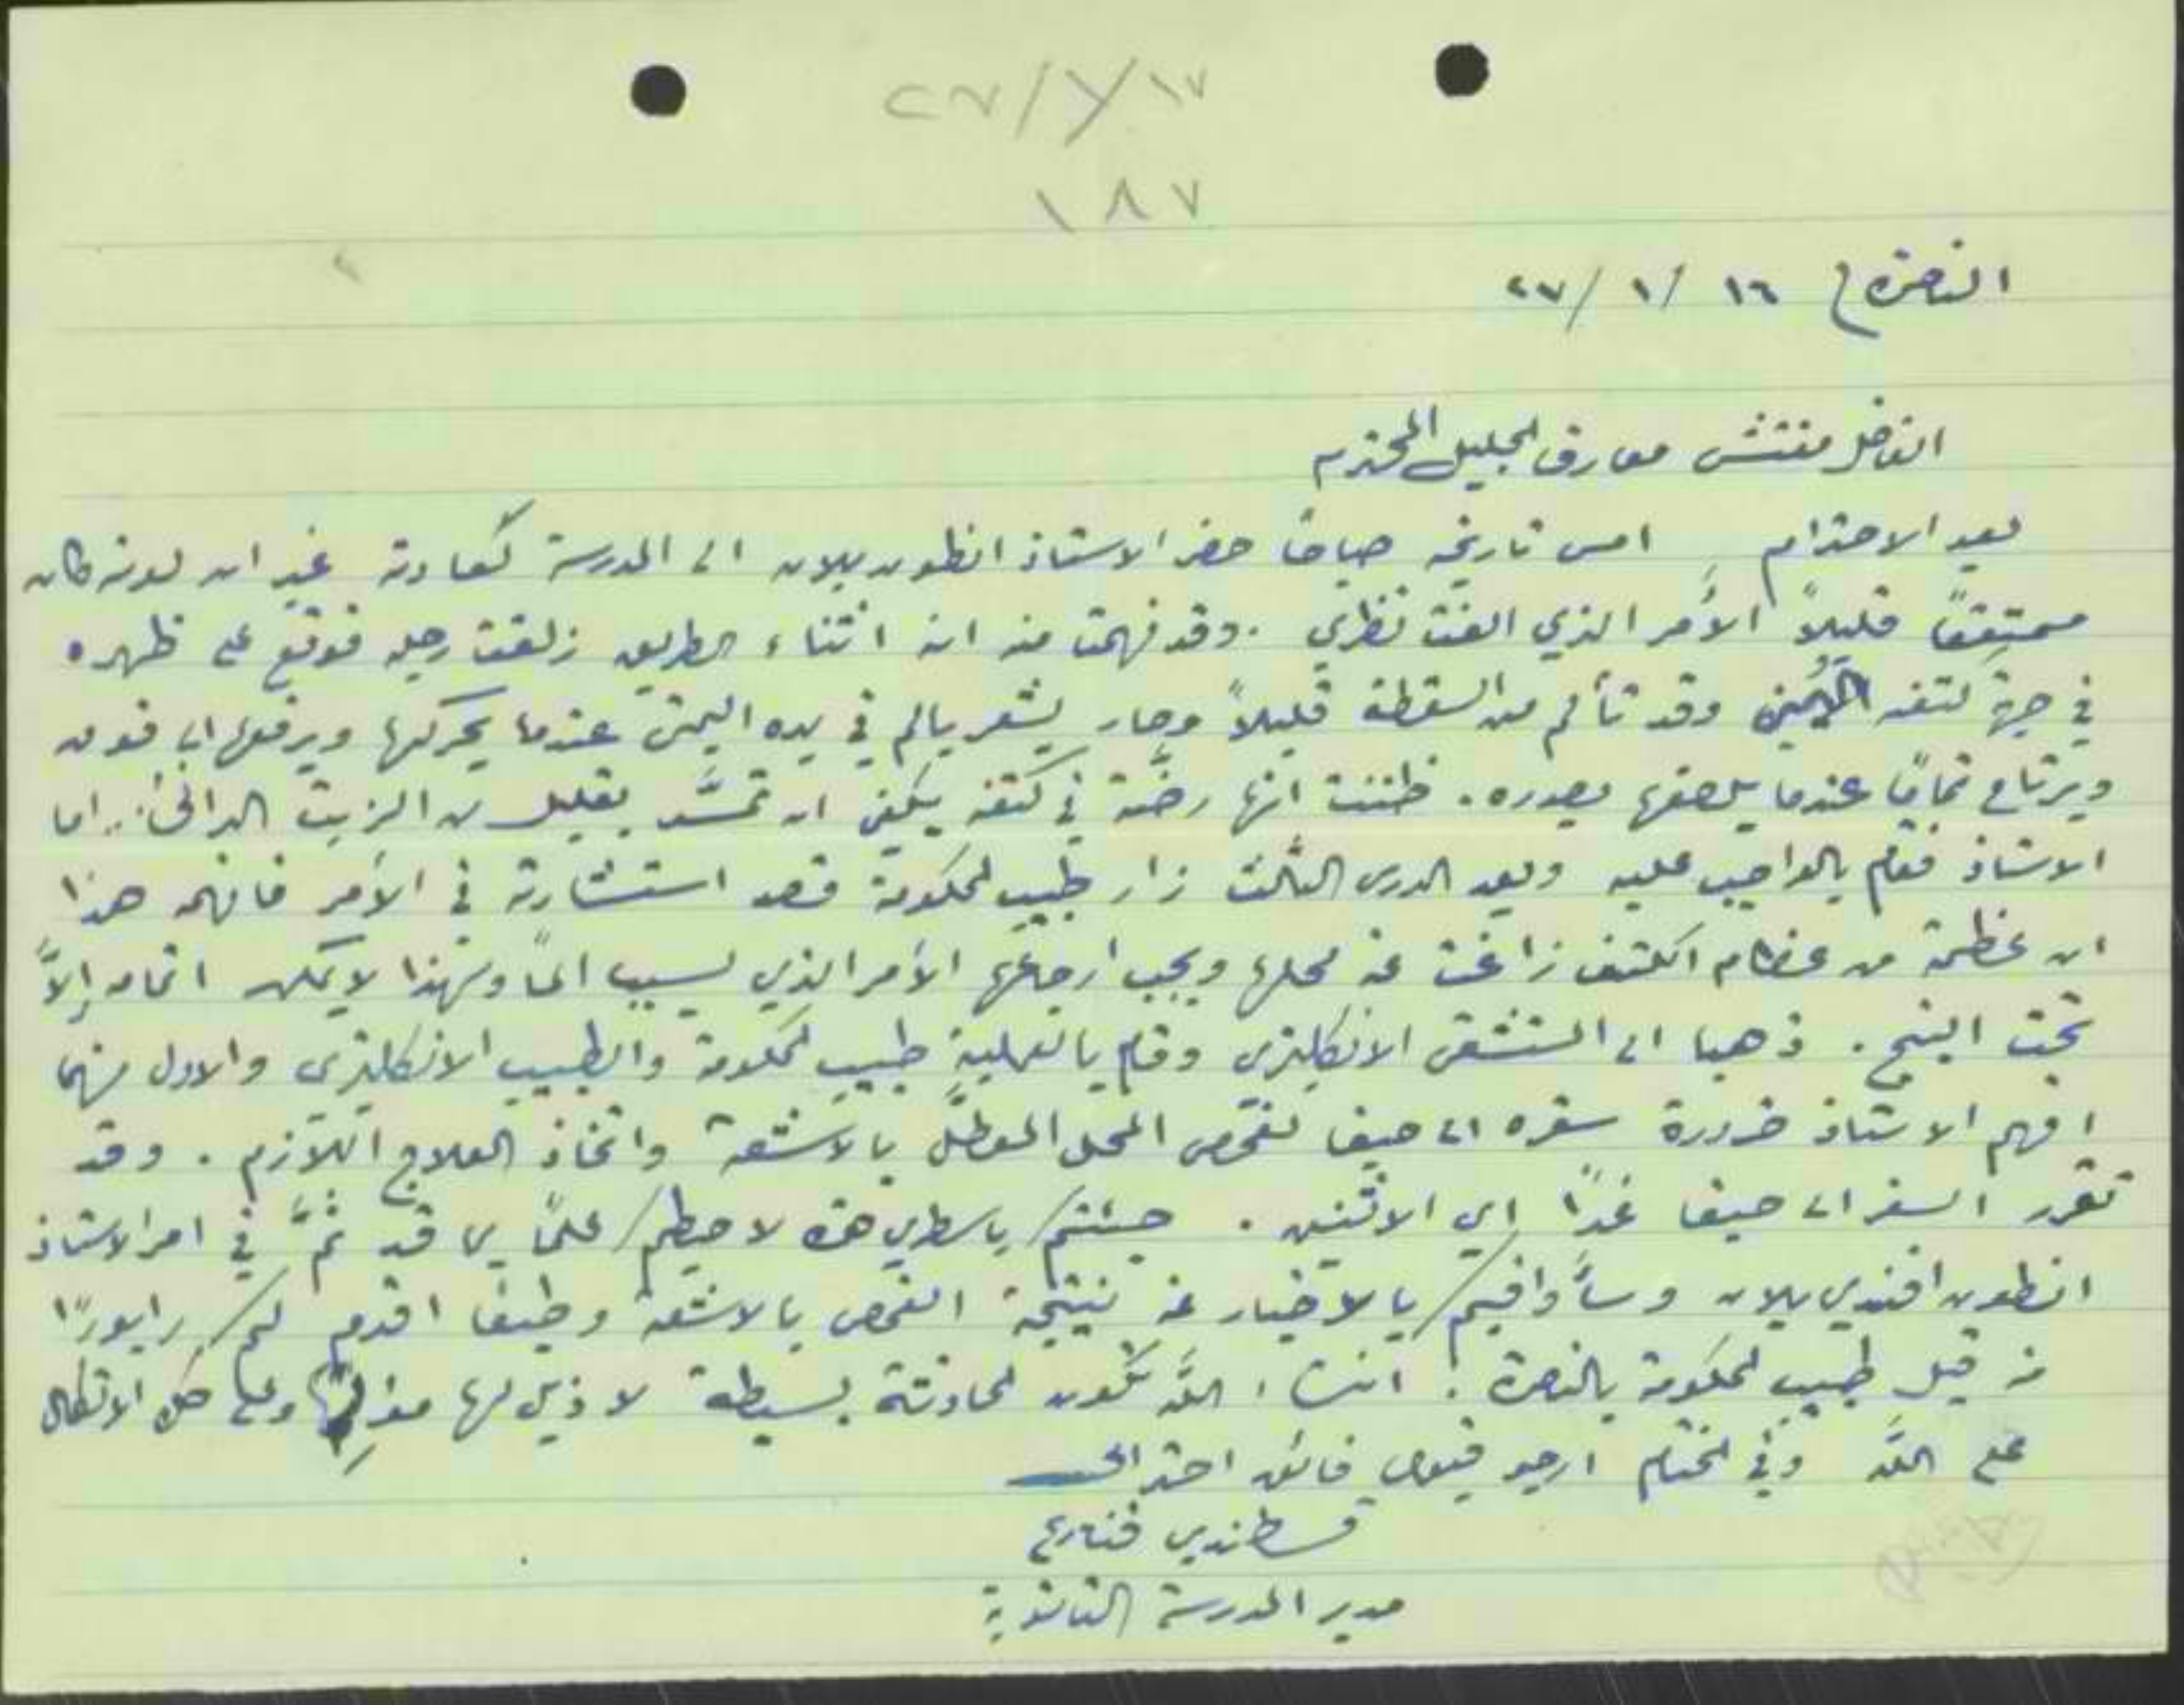 ٢٧/٧١٧
١٨٧
الناصرة ١٦ /١ /٢٧
الفاضل مفتش معارف الجليل المحترم
بعد الاحترام امس تاريخه صباحًا حضر الاستاذ انطون بلان الى المدرسة كعادته غير ان لونه كان
ممتقعًا قليلاً الأمر الذي الفت نظري . وقد فهمت منه انه اثناء الطريق زلقت رجله فوقع على ظهره
في جهة كتفه اليمنى وقد تألم من السقطة قليلاً وصار يشعر بالم في يده اليمنى عندما يحركها ويرفعها الى فوق
ويرتاح تمامًا عندما يلصقها بصدره . ظننت انها رضَّة في كتفه يكفي ان تمسَّد بقليل من الزيت الدافئ . اما
الاستاذ فقام بالواجب عليه وبعد الدرس الثالث زار طبيب الحكومة قصد استشارته في الأمر فافهمه هذا
ان عظمة من عظام الكتف زاغت عن محلها ويجب ارجاعها الأمر الذي يسبب المًا وهذا لا يمكن اتمامه إلاَّ
تحت البنج . ذهبا الى المستشفى الانكليزي وقام بالعملية طبيب الحكومة والطبيب الانكليزي والاول منهما
افهم الاستاذ ضرورة سفره الى حيفا لفحص المحل المعطل بالاشعة واتخاذ العلاج اللازم . وقد
تقرر السفر الى حيفا غدًا اي الاثنين . جئتكم باسطري هذه لاحيطكم علمًا بما قد تمَّ في امر الاستاذ
انطون افندي بلان وسأوافيكم بالاخبار عن نتيجة الفحص بالاشعة وطيفا اقدم لكم رابورًا
من قبل طبيب الحكومة بالناصرة . انشاء اللّه تكون الحادثة بسيطة لا ذيل لها وعلى كل الاتكال
على اللّه وفي الختام ارجو قبول فائق احترامي
قسطندي قنازع
مدير المدرسة الثانوية